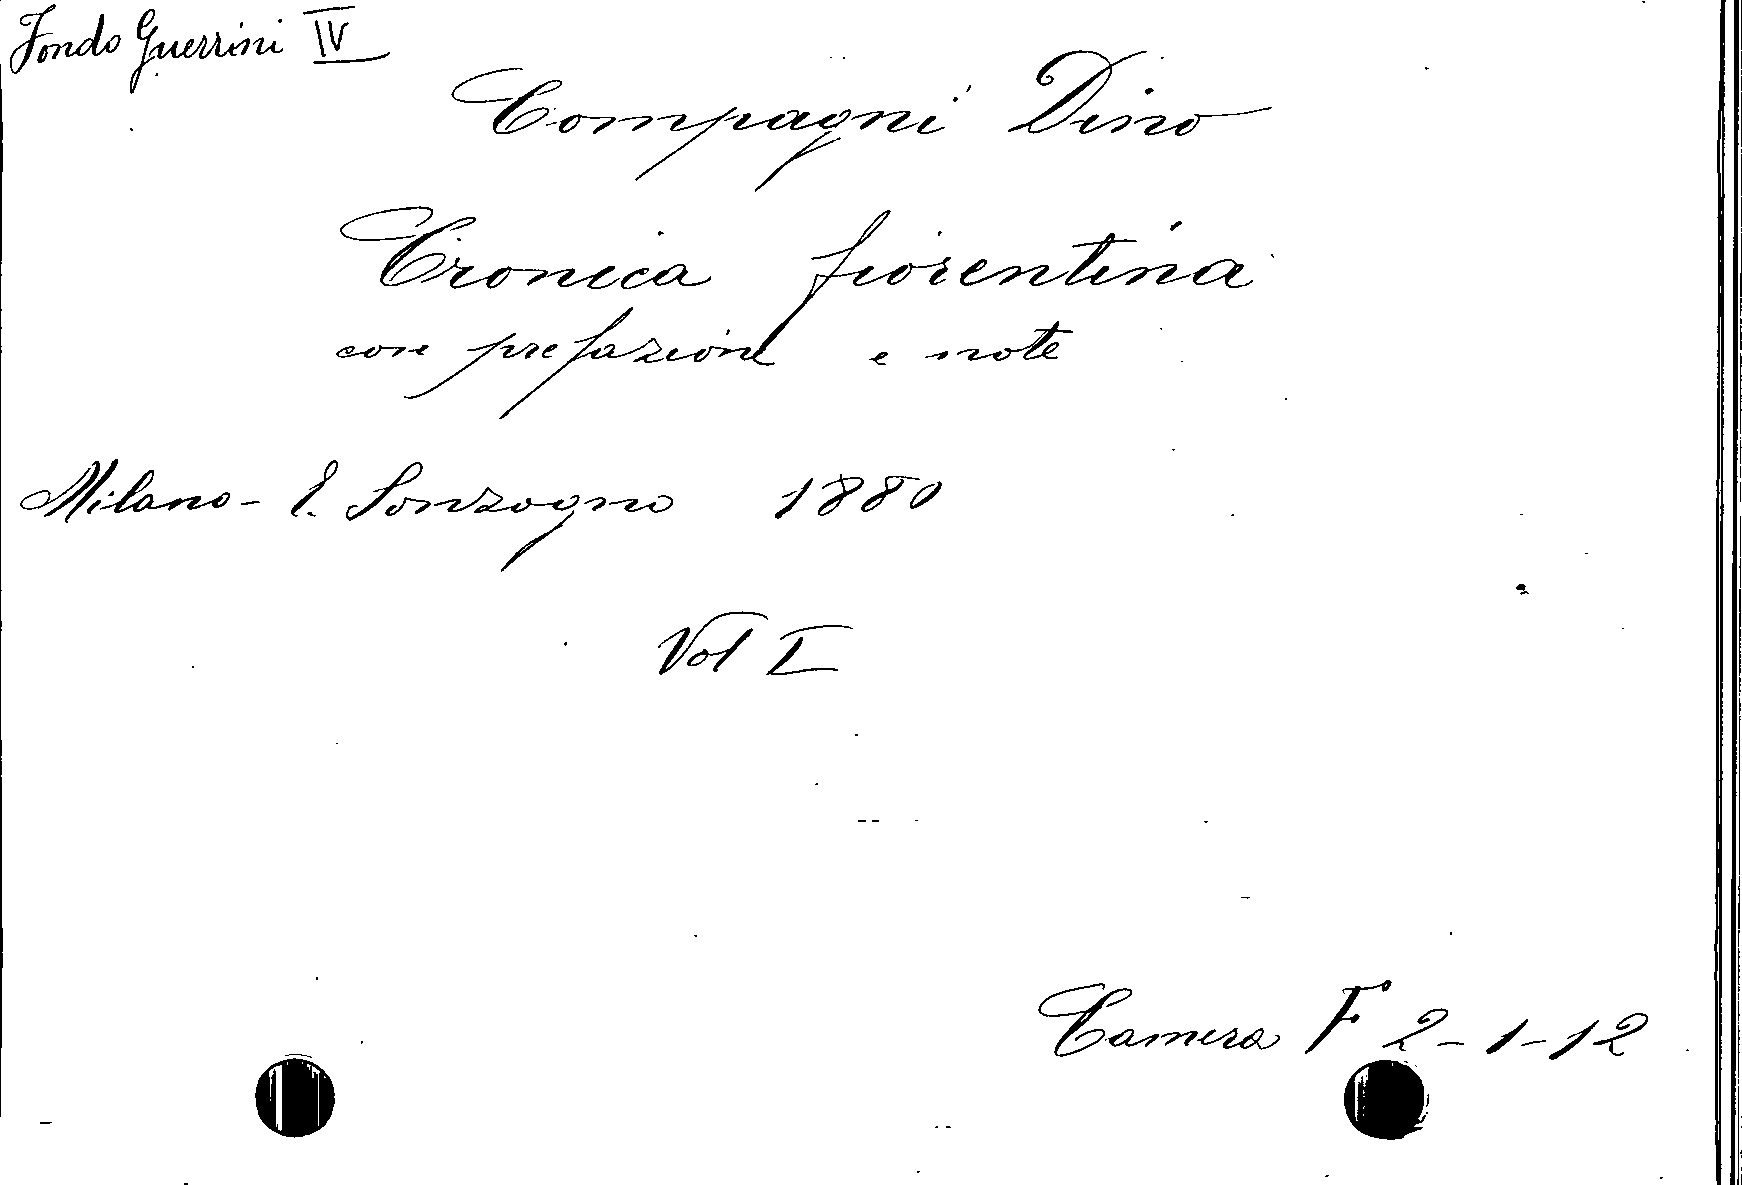 Fondo Guerrini IV
Compagni Dino
Cronica fiorentina
con prefazione e note
Milano - E. Sonzogno 1880
Vol I
Camera F 2-1-12